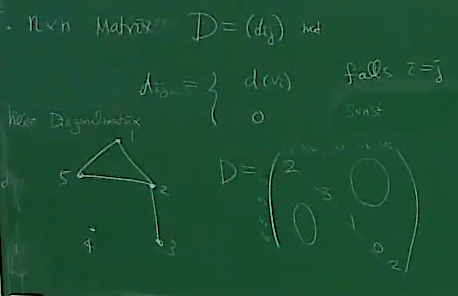 n×n Matrix D = (dij) mit
dij = { d(vi) falls i=j
0 sonst
heißt Diagonalmatrix
1
5
2
4
3
D = ( 2
3
0
1
0
0
2 )